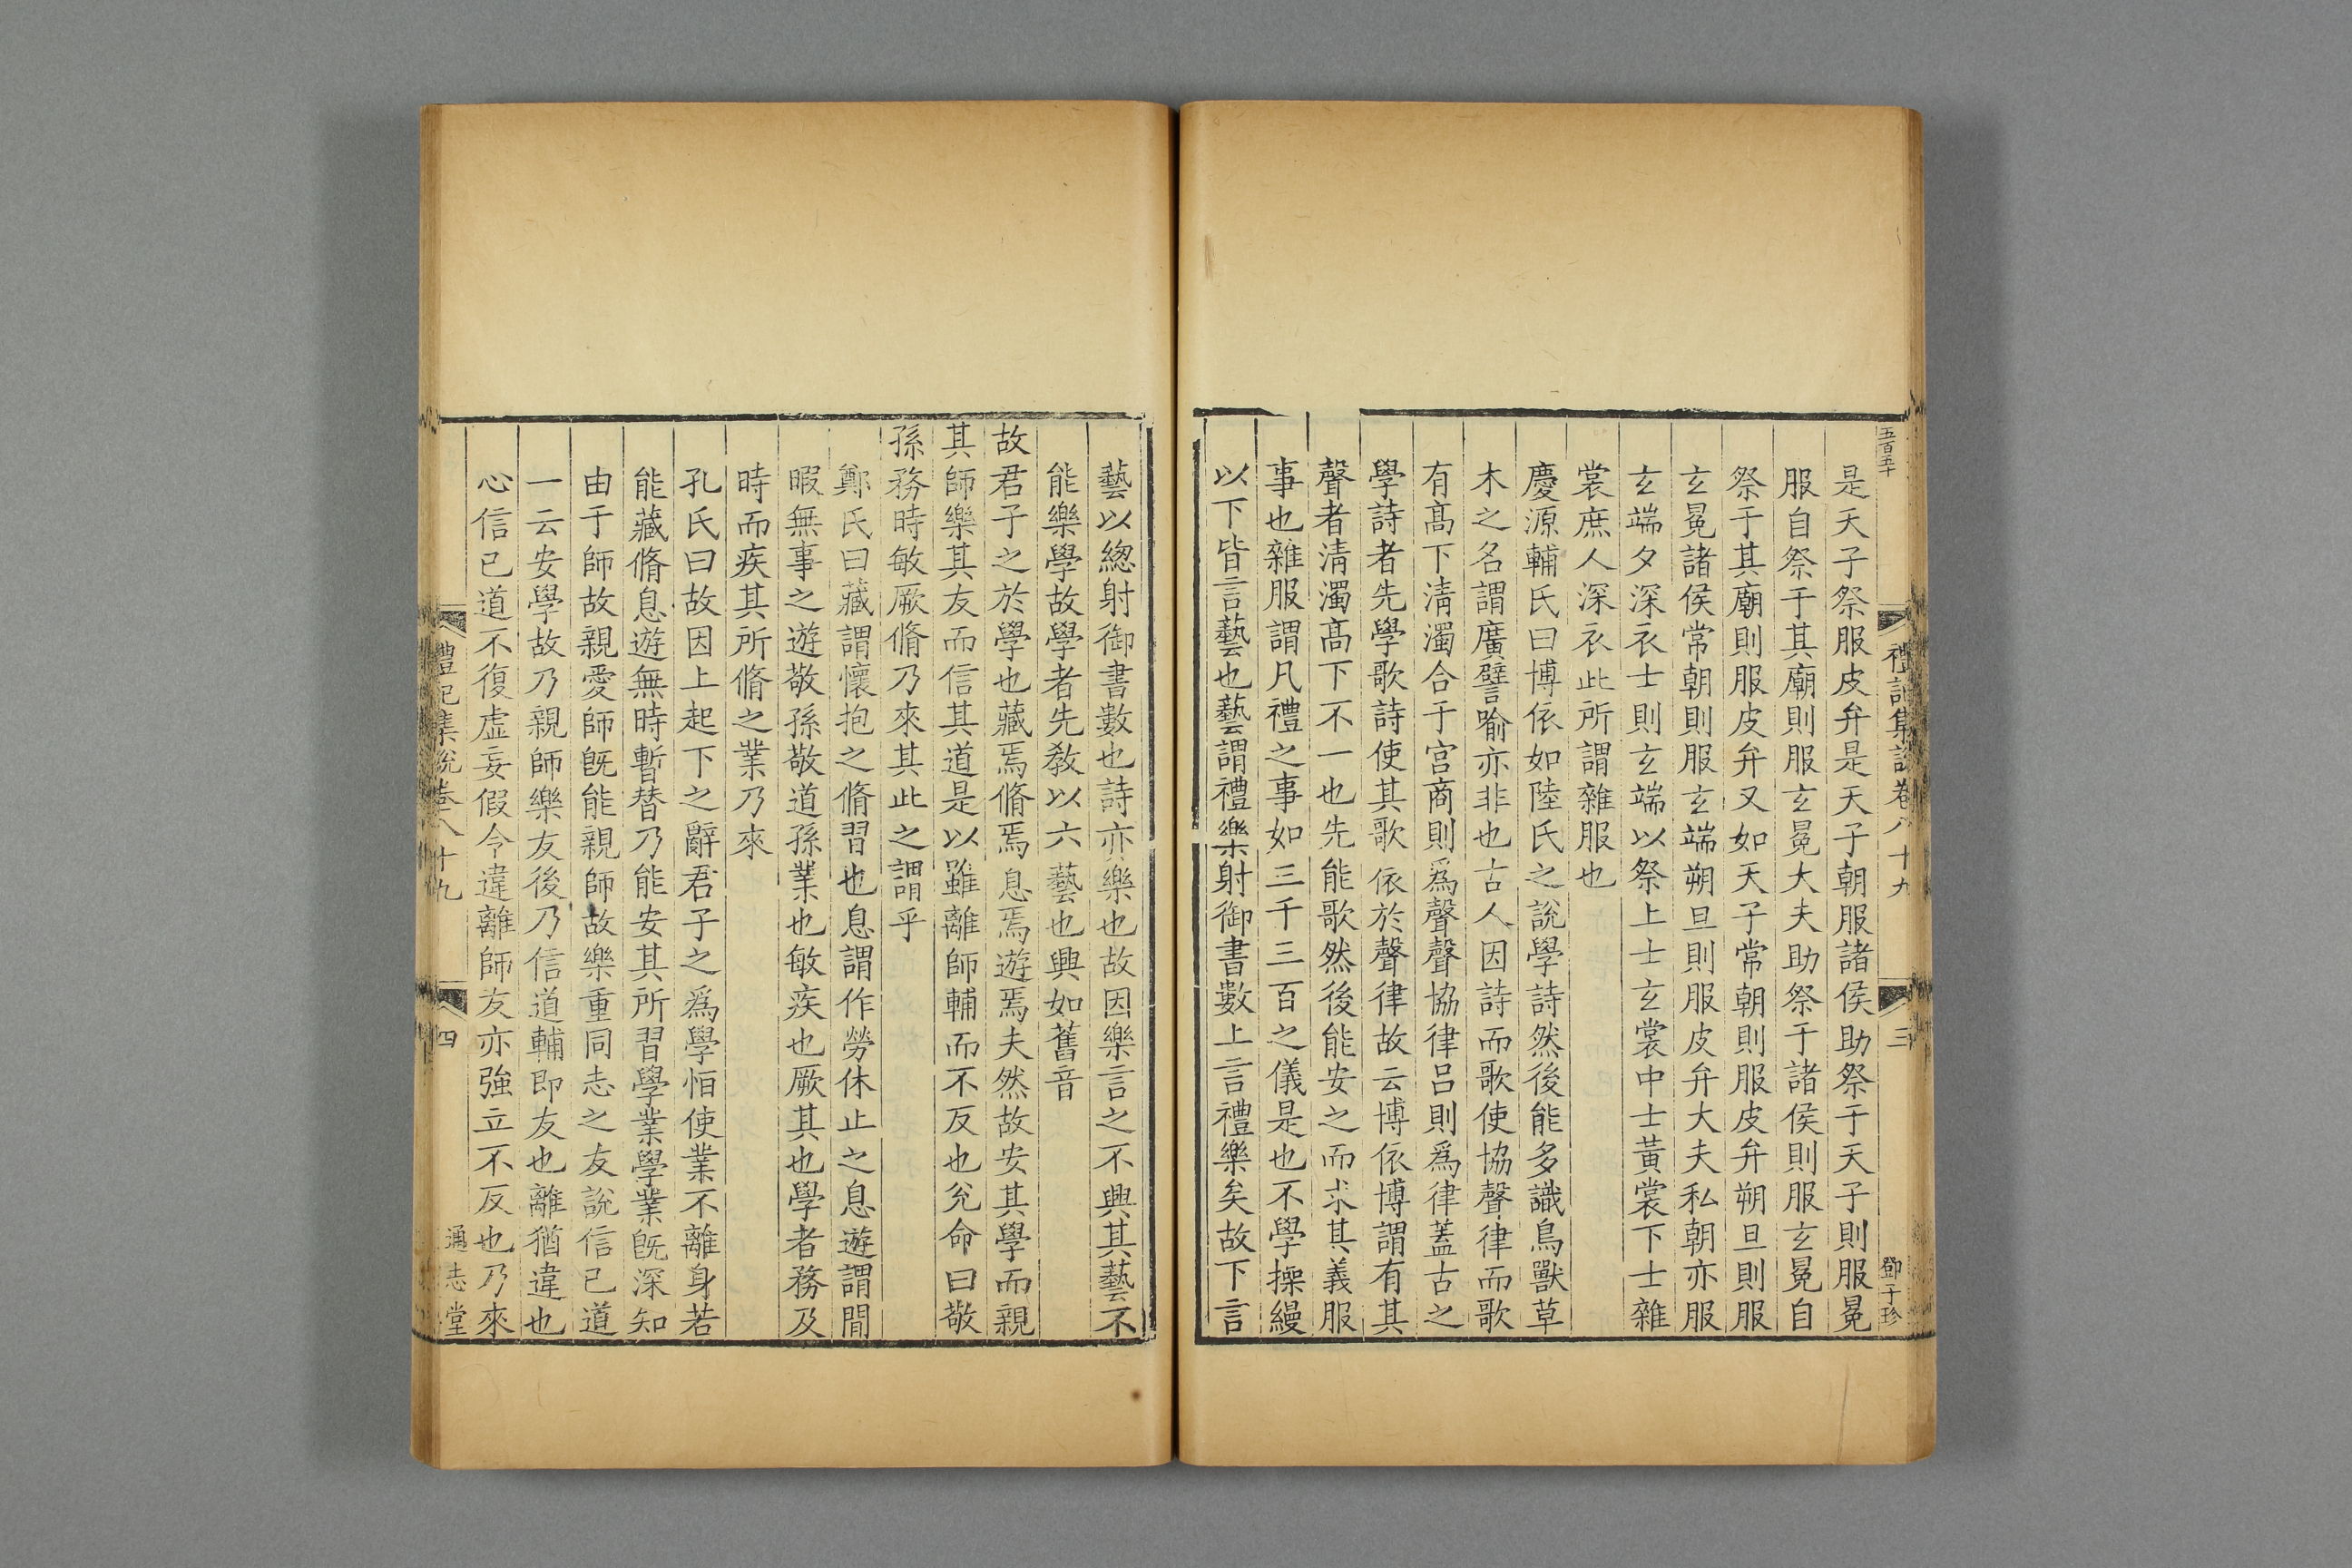 五百五十
禮記集說卷八十九
三
鄧子珍
是天子祭服皮弁是天子朝服諸侯助祭于天子則服冕
服自祭于其廟則服玄冕大夫助祭于諸侯則服玄冕自
祭于其廟則服皮弁又如天子常朝則服皮弁朔旦則服
玄冕諸侯常朝則服玄端朔旦則服皮弁大夫私朝亦服
玄端夕深衣士則玄端以祭上士玄裳中士黃裳下士雜
裳庶人深衣此所謂雜服也
慶源輔氏曰博依如陸氏之說學詩然後能多識鳥獸草
木之名謂廣譬喻亦非也古人因詩而歌使協聲律而歌
有髙下清濁合于宫商則爲聲聲協律呂則爲律蓋古之
學詩者先學歌詩使其歌依於聲律故云博依博謂有其
聲者清濁髙下不一也先能歌然後能安之而求其義服
事也雜服謂凡禮之事如三千三百之儀是也不學操縵
以下皆言藝也藝謂禮樂射御書數上言禮樂矣故下言
藝以緫射御書數也詩亦樂也故因樂言之不興其藝不
能樂學故學者先教以六藝也興如舊音
故君子之於學也藏焉脩焉息焉遊焉夫然故安其學而親
其師樂其友而信其道是以雖離師輔而不反也兊命曰敬
孫務時敏厥脩乃來其此之謂乎
鄭氏曰藏謂懷抱之脩習也息謂作勞休止之息遊謂閒
暇無事之遊敬孫敬道孫業也敏疾也厥其也學者務及
時而疾其所脩之業乃來
孔氏曰故因上起下之辭君子之爲學怕使業不離身若
能藏脩息遊無時暫替乃能安其所習學業學業旣深知
由于師故親愛師旣能親師故樂重同志之友說信已道
一云安學故乃親師樂友後乃信道輔即友也離猶違也
心信已道不復虛妄假令違離師友亦強立不反也乃來
禮記集說卷八十九
四
通志堂